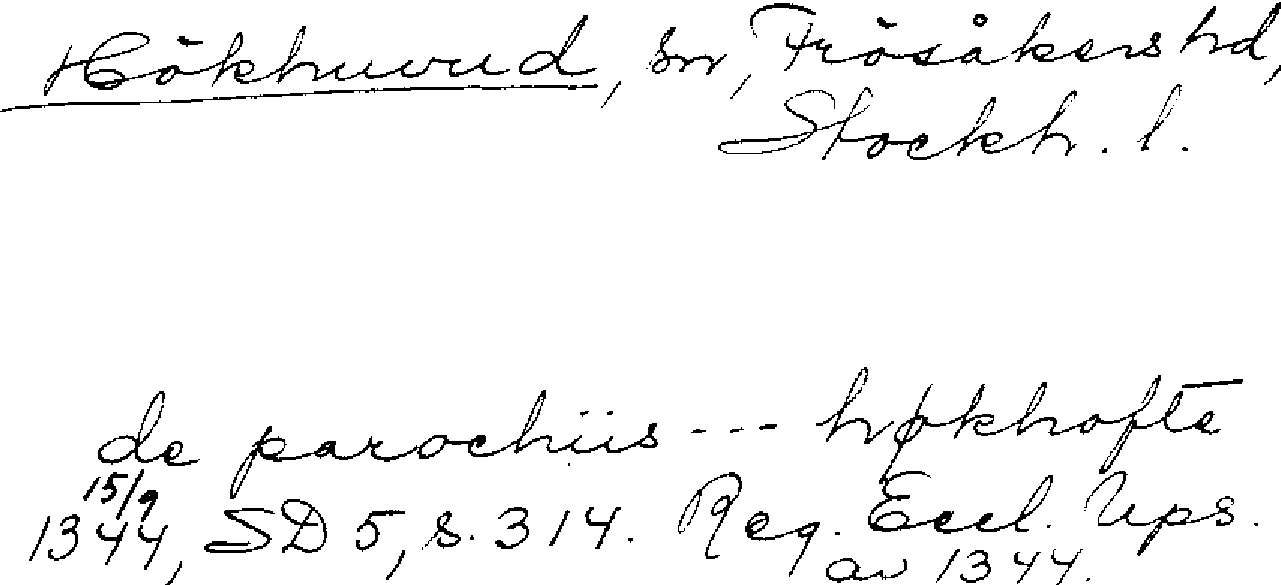 Hökhuvud, sn, Frösåkers hd,
Stockh. l.
de parochiis --- høkhofte
15/9
1344, SD 5, s. 314. Reg. Eccl. Ups.
av 1344.